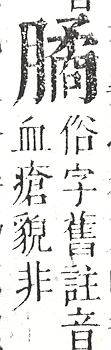 俗字舊註音
血瘡貌非